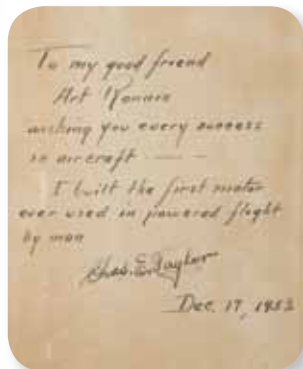 To my good friend
Art
wishing you every success
in aircraft — —
I built the first motor
ever used in powered flight
by man
Chas. E. Taylor
Dec. 17, 1953